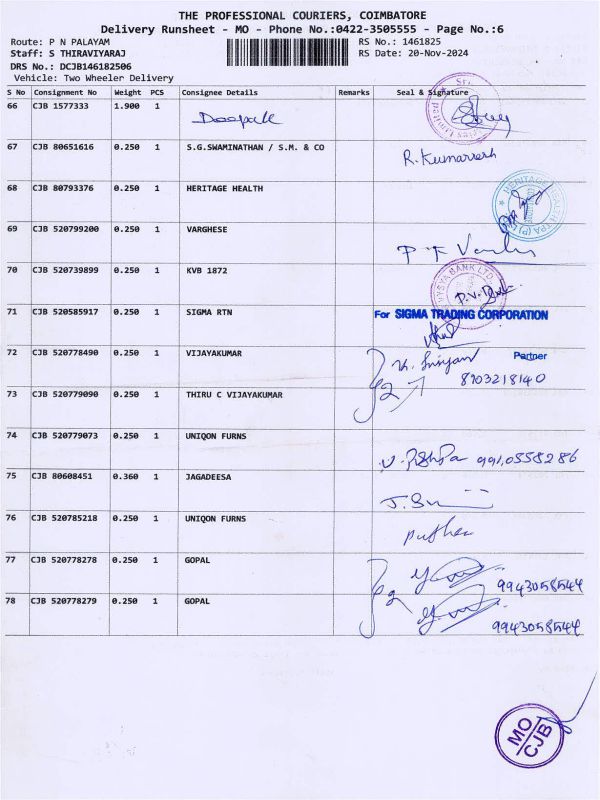 THE PROFESSIONAL COURIERS, COIMBATORE
Delivery Runsheet - MO - Phone No.:0422-3505555 - Page No.:6
Route: P N PALAYAM
RS No.: 1461825
Staff: S THIRAVIYARAJ
RS Date: 20-Nov-2024
DRS No.: DCJB146182506
Vehicle: Two Wheeler Delivery
S No Consignment No Weight PCS Consignee Details Remarks Seal & Signature
66 CJB 1577333 1.900 1 Deepak
67 CJB 80651616 0.250 1 S.G.SWAMINATHAN / S.M. & CO R. Kumaresh
68 CJB 80793376 0.250 1 HERITAGE HEALTH
69 CJB 520799200 0.250 1 VARGHESE
70 CJB 520739899 0.250 1 KVB 1872
VYSYA BANK LTD
71 CJB 520585917 0.250 1 SIGMA RTN For SIGMA TRADING CORPORATION
Partner
72 CJB 520778490 0.250 1 VIJAYAKUMAR
2 8903218140
73 CJB 520779090 0.250 1 THIRU C VIJAYAKUMAR
74 CJB 520779073 0.250 1 UNIQON FURNS
991,0558286
75 CJB 80608451 0.360 1 JAGADEESA
76 CJB 520785218 0.250 1 UNIQON FURNS
77 CJB 520778278 0.250 1 GOPAL 9943058544
2
78 CJB 520778279 0.250 1 GOPAL 9943058544
MO
CJB